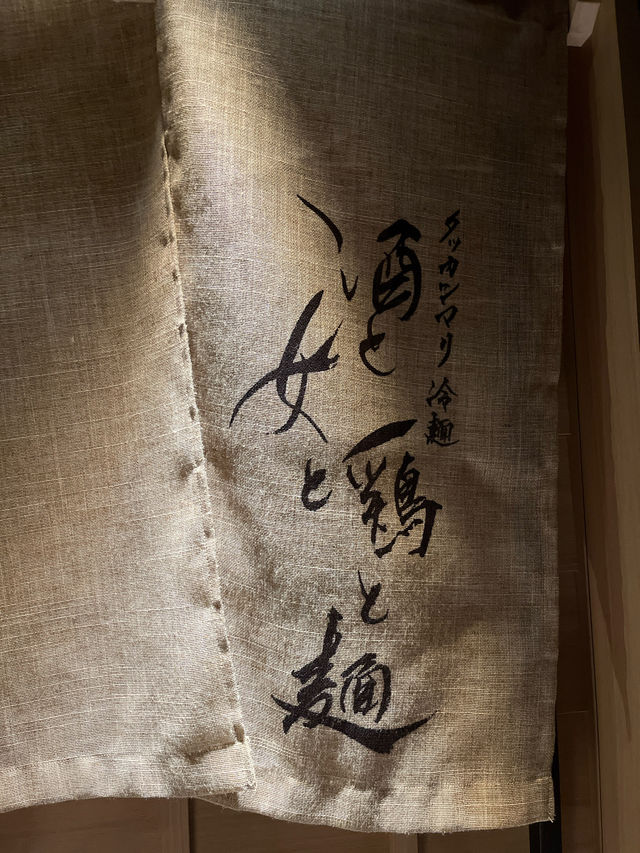 タッカンマリ 冷麺
酒と
女と
鶏と
麺